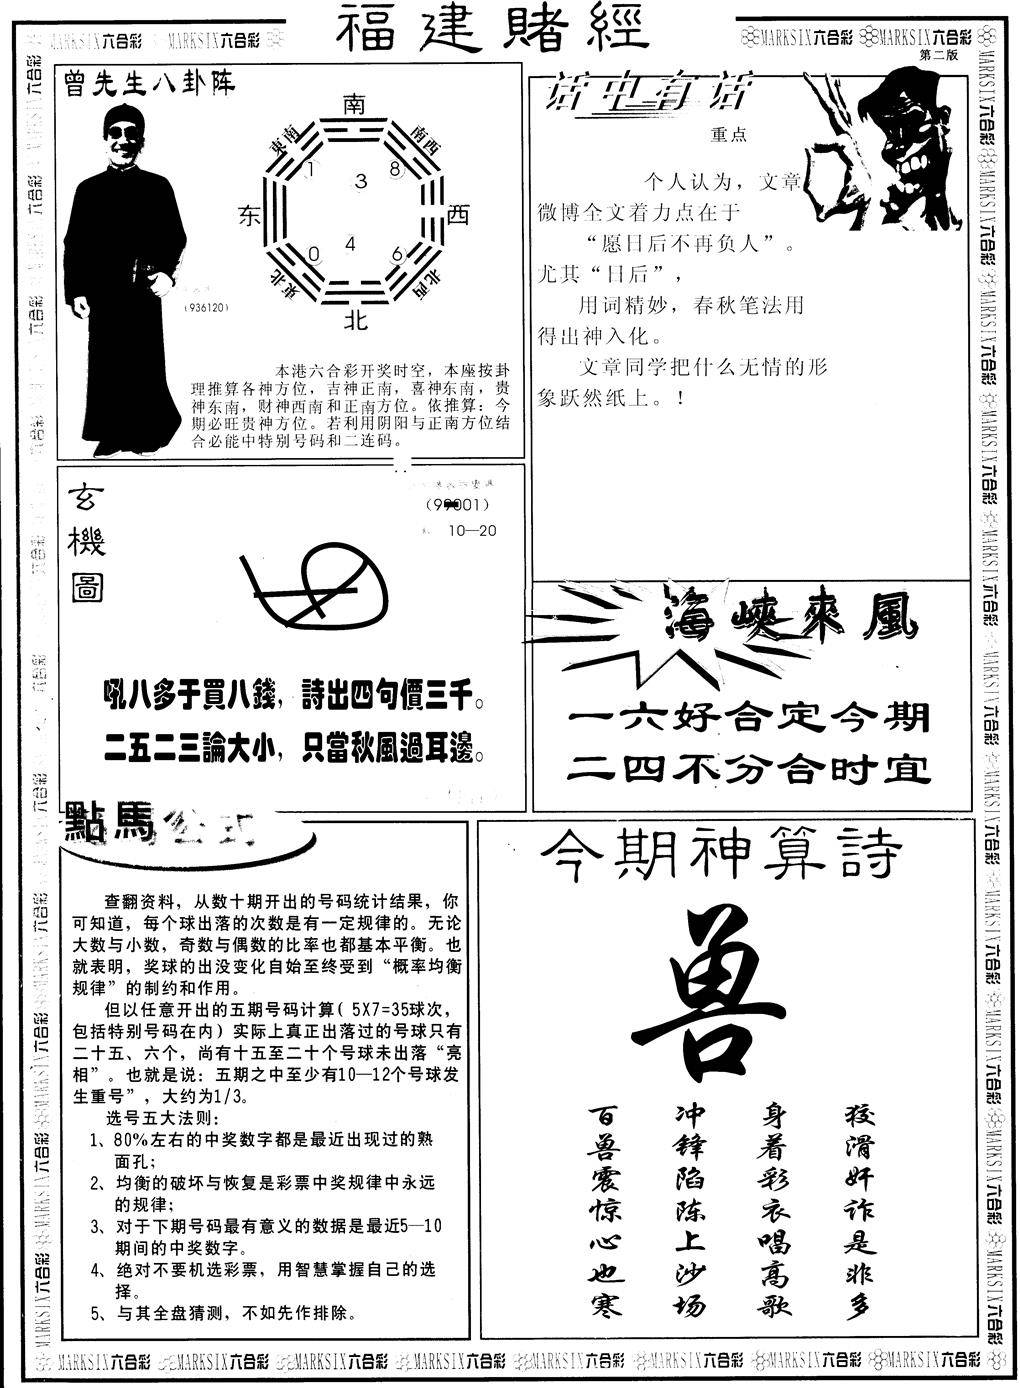 福建賭經
MARKSIX六合彩 MARKSIX六合彩
MARKSIX六合彩 MARKSIX六合彩
第二版
曾先生八卦阵
南
東南
南西
1
3
8
东
西
0
4
6
東北
北西
北
(936120)
本港六合彩开奖时空，本座按卦
理推算各神方位，吉神正南，喜神东南，贵
神东南，财神西南和正南方位。依推算：今
期必旺贵神方位。若利用阴阳与正南方位结
合必能中特别号码和二连码。
话中有话
重点
个人认为，文章
微博全文着力点在于
“愿日后不再负人”。
尤其“日后”，
用词精妙，春秋笔法用
得出神入化。
文章同学把什么无情的形
象跃然纸上。！
玄機圖
10—20
吼八多于買八錢，詩出四句價三千。
二五二三論大小，只當秋風過耳邊。
海峽來風
一六好合定今期
二四不分合时宜
點馬公式
查翻资料，从数十期开出的号码统计结果，你
可知道，每个球出落的次数是有一定规律的。无论
大数与小数，奇数与偶数的比率也都基本平衡。也
就表明，奖球的出没变化自始至终受到“概率均衡
规律”的制约和作用。
但以任意开出的五期号码计算( 5X7=35球次，
包括特别号码在内）实际上真正出落过的号球只有
二十五、六个，尚有十五至二十个号球未出落“亮
相”。也就是说：五期之中至少有10—12个号球发
生重号”，大约为1/3。
选号五大法则：
1、80%左右的中奖数字都是最近出现过的熟
面孔；
2、均衡的破坏与恢复是彩票中奖规律中永远
的规律；
3、对于下期号码最有意义的数据是最近5—10
期间的中奖数字。
4、绝对不要机选彩票，用智慧掌握自己的选
择。
5、与其全盘猜测，不如先作排除。
今期神算詩
兽
狡滑奸诈是非多
身着彩衣唱高歌
冲锋陷陈上沙场
百兽震惊心也寒
MARKSIX六合彩 MARKSIX六合彩 MARKSIX六合彩 MARKSIX六合彩 MARKSIX六合彩 MARKSIX六合彩 MARKSIX六合彩 MARKSIX六合彩